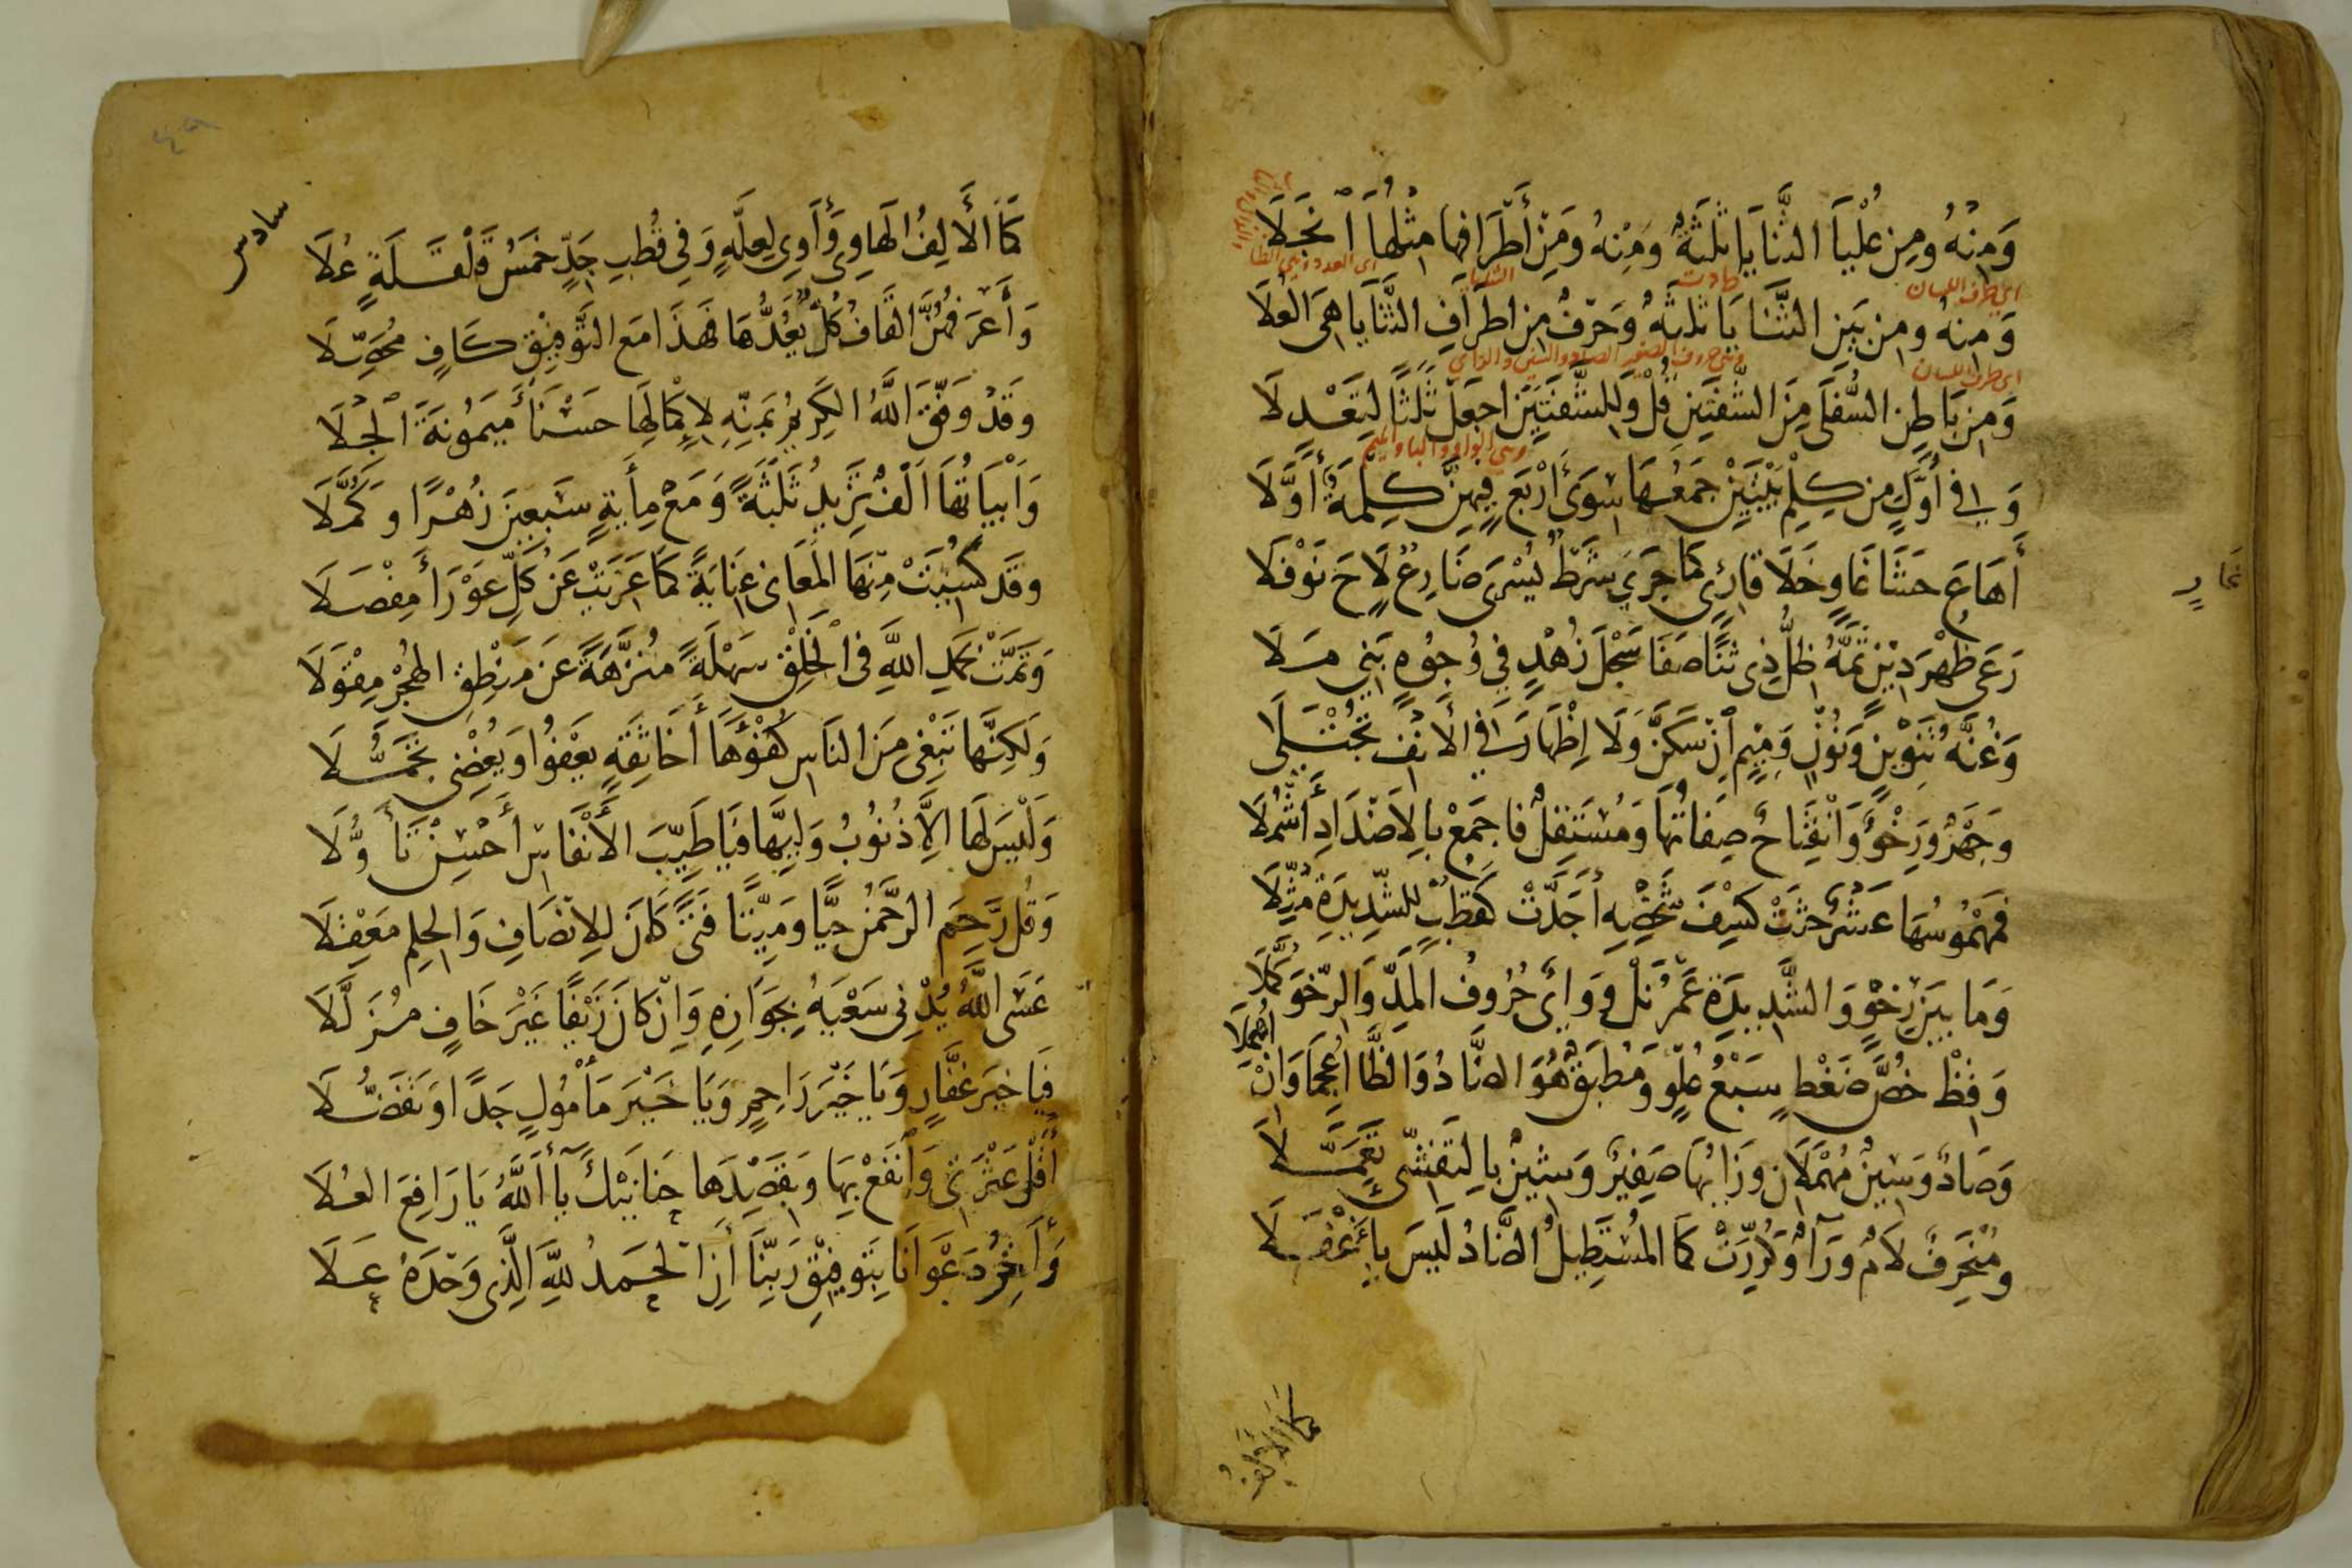 وَمِنْهُ وَمِنْ عُلْيَا الثَّنَايَا ثَلَثَةٌ وَمِنْهُ وَمِنْ أَطْرَافِهَا مِثْلُهَا انْجَلَا
اى العدد وهي الظا
اى طرف اللسان
حادث
الثنايا
وَمِنْهُ وَمِنْ بَيْنِ الثَّنَايَا ثَلثَةٌ وَحَرْفٌ مِنْ اطْرَافِ الثَّنَايَا هِىَ الْعُلَا
اى طرف اللسان
وهي حروف الصفير الصاد والسين والزاى
وَمِنْ بَاطِنِ السُّفْلَى مِنَ الشَّفَتَيْنِ قُلْ وَلِلشَّفَتَيْنِ اجْعَلْ ثَلَثًا لِتَعْدِلَا
وهي الواو والبا والميم
وَفِى أَوَّلٍ مِنْ كِلْمِ بَيْتَيْنِ جَمْعُهَا سِوَى أَرْبَعٍ فِيهِنَّ كِلْمَةٌ أَوَّلَا
أَهَاعَ حَشَا غَاوٍ خَلَا قَارِئٍ كَمَا جَرَى شَرْطُ يُسْرَى ضَارِعٍ لَاحَ نَوْفَلَا
رَعَى طُهْرَ دِيْنٍ تَمَّهُ ظِلُّ ذِى ثَنًا صَفَا سَجْلُ زُهْدٍ فِي وُجُوهِ بَنِي مَلَا
وَغُنَّةُ تَنْوِيْنٍ وَنُوْنٍ وَمِيْمٍ اِنْ سَكَنَّ وَلَا اِظْهَارَ فِي الْاَنْفِ تُجْتَلَى
وَجَهْرٌ وَرِخْوٌ وَانْفِتَاحٌ صِفَاتُهَا وَمُسْتَفِلٌ فَاجْمَعْ بِالْاَضْدَادِ أَشْمُلَا
فَمَهْمُوسُهَا عَشْرٌ حَثَتْ كَسِْفَ شَخْصِهِ أَجَدَّتْ كَقُطْبٍ لِلشَّدِيدَةِ مُثِّلَا
وَمَا بَيْنَ رِخْوٍ وَالشَّدِيدَةِ عَمْرُ نَلْ وَوَاىٌ حُرُوفُ الْمَدِّ وَالرِّخْوَ كَمَّلَا
وَقِظْ خُصَّ ضَغْطٍ سَبْعُ عُلْوٍ وَمُطْبَقٌ هُوَ الضَّادُ وَالظَّا اُعْجِمَا وَاِنْ اُهْمِلَا
وَصَادٌ وَسِينٌ مُهْمَلَانِ وَزَايُهَا صَفِيرٌ وَشِيْنٌ بِالتَّفَشِّى تَعَمَّلَا
وَمُنْحَرِفٌ لَامٌ وَرَآءٌ وَكُرِّرَتْ كَمَا الْمُسْتَطِيلُ الضَّادُ لَيْسَ بِأَغْفَلَا
كما الألف
سادس
كَمَا الْأَلِفُ الْهَاوِى وَأَاوِى لِعِلَّةٍ وَفِى قُطْبِ جَدٍّ خَمْسُ قَلْقَلَةٍ عُلَا
وَأَعْرَفُهُنَّ الْقَافُ كُلٌّ يَعُدُّهَا فَهَذَا مَعَ التَّوْفِيْقِ كَافٍ مُحَصِّلَا
وَقَدْ وَفَّقَ اللَّهُ الْكَرِيْمُ بِمَنِّهِ لِإِكْمَالِهَا حَسْنَآءَ مَيْمُونَةَ الْجِلَا
وَاَبْيَاتُهَا اَلْفٌ تَزِيدُ ثَلَثَةً وَمَعْ مِأَيَةٍ سَبْعِينَ زُهْرًا وَكُمَّلَا
وَقَدْ كُسِيَتْ مِنْهَا الْمَعَانِى عِنَايَةً كَمَا عَرِيَتْ عَنْ كُلِّ عَوْرَآءَ مِفْصَلَا
وَتَمَّتْ بِحَمْدِ اللَّهِ فِى الْخَلْقِ سَهْلَةً مُنَزَّهَةً عَنْ مَنْطِقِ الْهُجْرِ مِقْوَلَا
وَلَكِنَّهَا تَبْغِى مِنَ النَّاسِ كُفْؤَهَا أَخَاثِقَةٍ يَعْفُوا وَيُغْضِى تَجَمُّلَا
وَلَيْسَ لَهَا اِلَّا ذُنُوبُ وَلِيِّهَا فَيَا طَيِّبَ الْأَنْفَاسِ أَحْسِنْ تَأَوُّلَا
وَقُلْ رَحِمَ الرَّحْمَنُ حَيًّا وَمَيِّتًا فَتًى كَانَ لِلْاِنْصَافِ وَالْحِلْمِ مَعْقِلَا
عَسَى اللَّهُ يُدْنِى سَعْيَهُ بِجَوَازِهِ وَاِنْ كَانَ زَيْفًا غَيْرَ خَافٍ مُزَلَّلَا
فَيَا خَيْرَ غَفَّارٍ وَيَا خَيْرَ رَاحِمٍ وَيَا خَيْرَ مَأْمُولٍ جَدًا وَتَفَضُّلَا
أَقِلْ عَثْرَتِى وَانْفَعْ بِهَا وَبِقَصْدِهَا حَنَانَيْكَ يَآ أَللَّهُ يَا رَافِعَ الْعُلَا
وَأَاخِرُ دَعْوَانَا بِتَوْفِيْقِ رَبِّنَا أَنِ الْحَمْدُ لِلَّهِ الَّذِى وَحْدَهُ عَلَا